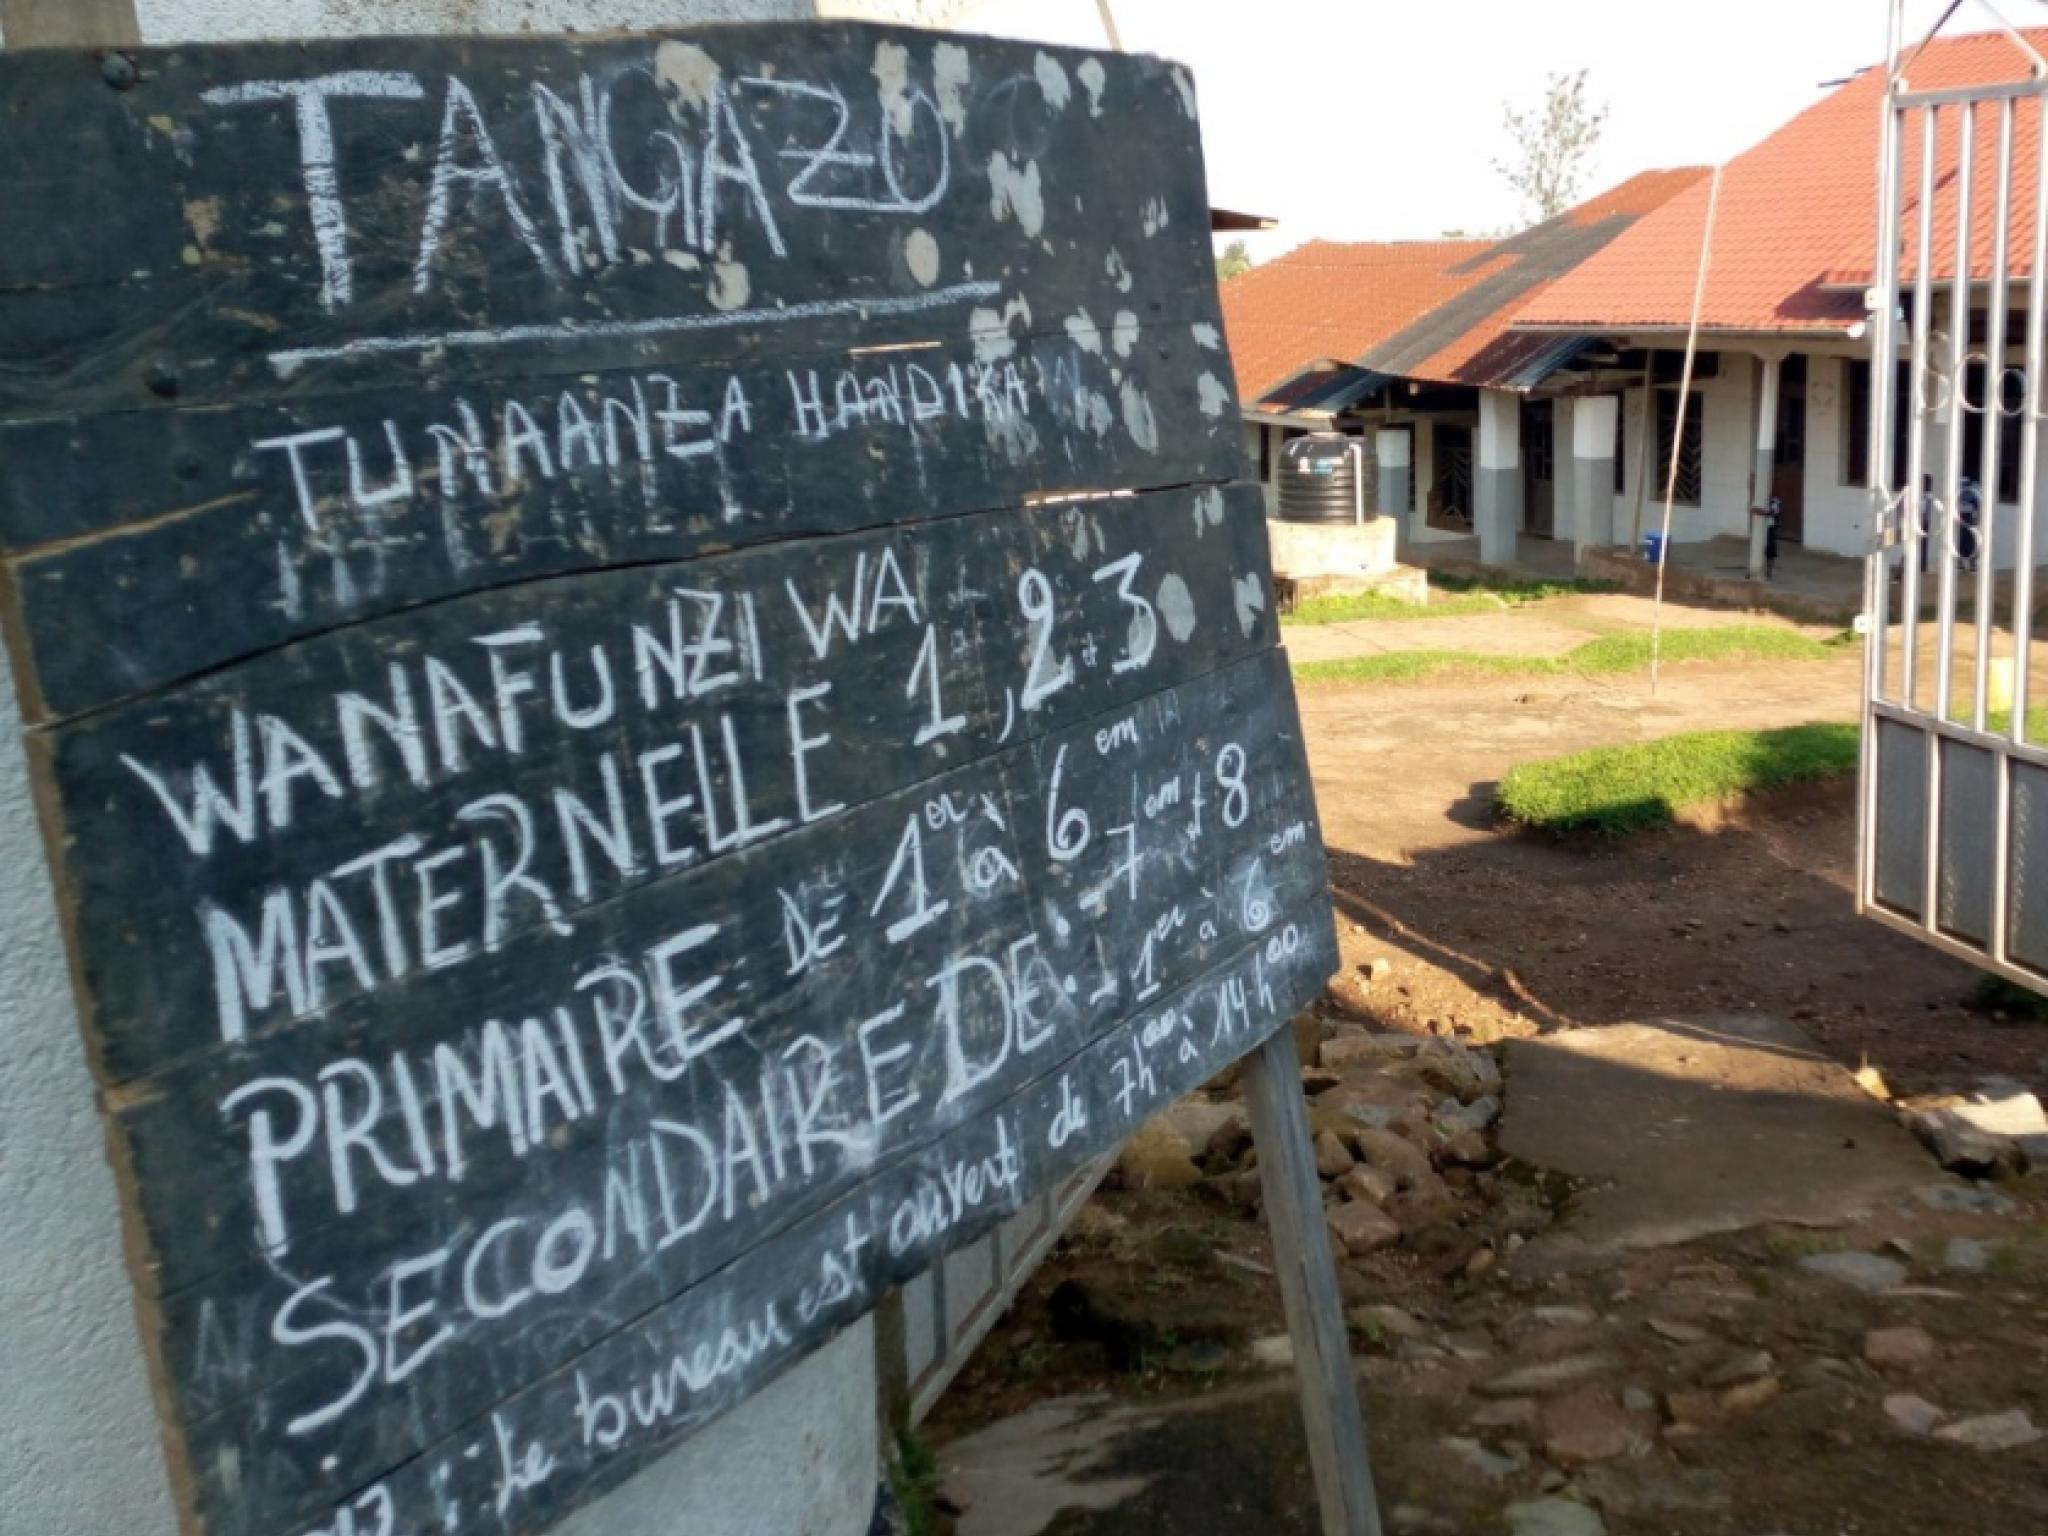 TANGAZO
TUNAANZA HANDIKA
WANAFUNZI WA
MATERNELLE 1, 2 et 3
PRIMAIRE DE 1er à 6em
SECONDAIRE DE: - 7em et 8
- 1er à 6em.
: Le bureau est ouvert de 7h00 à 14h00